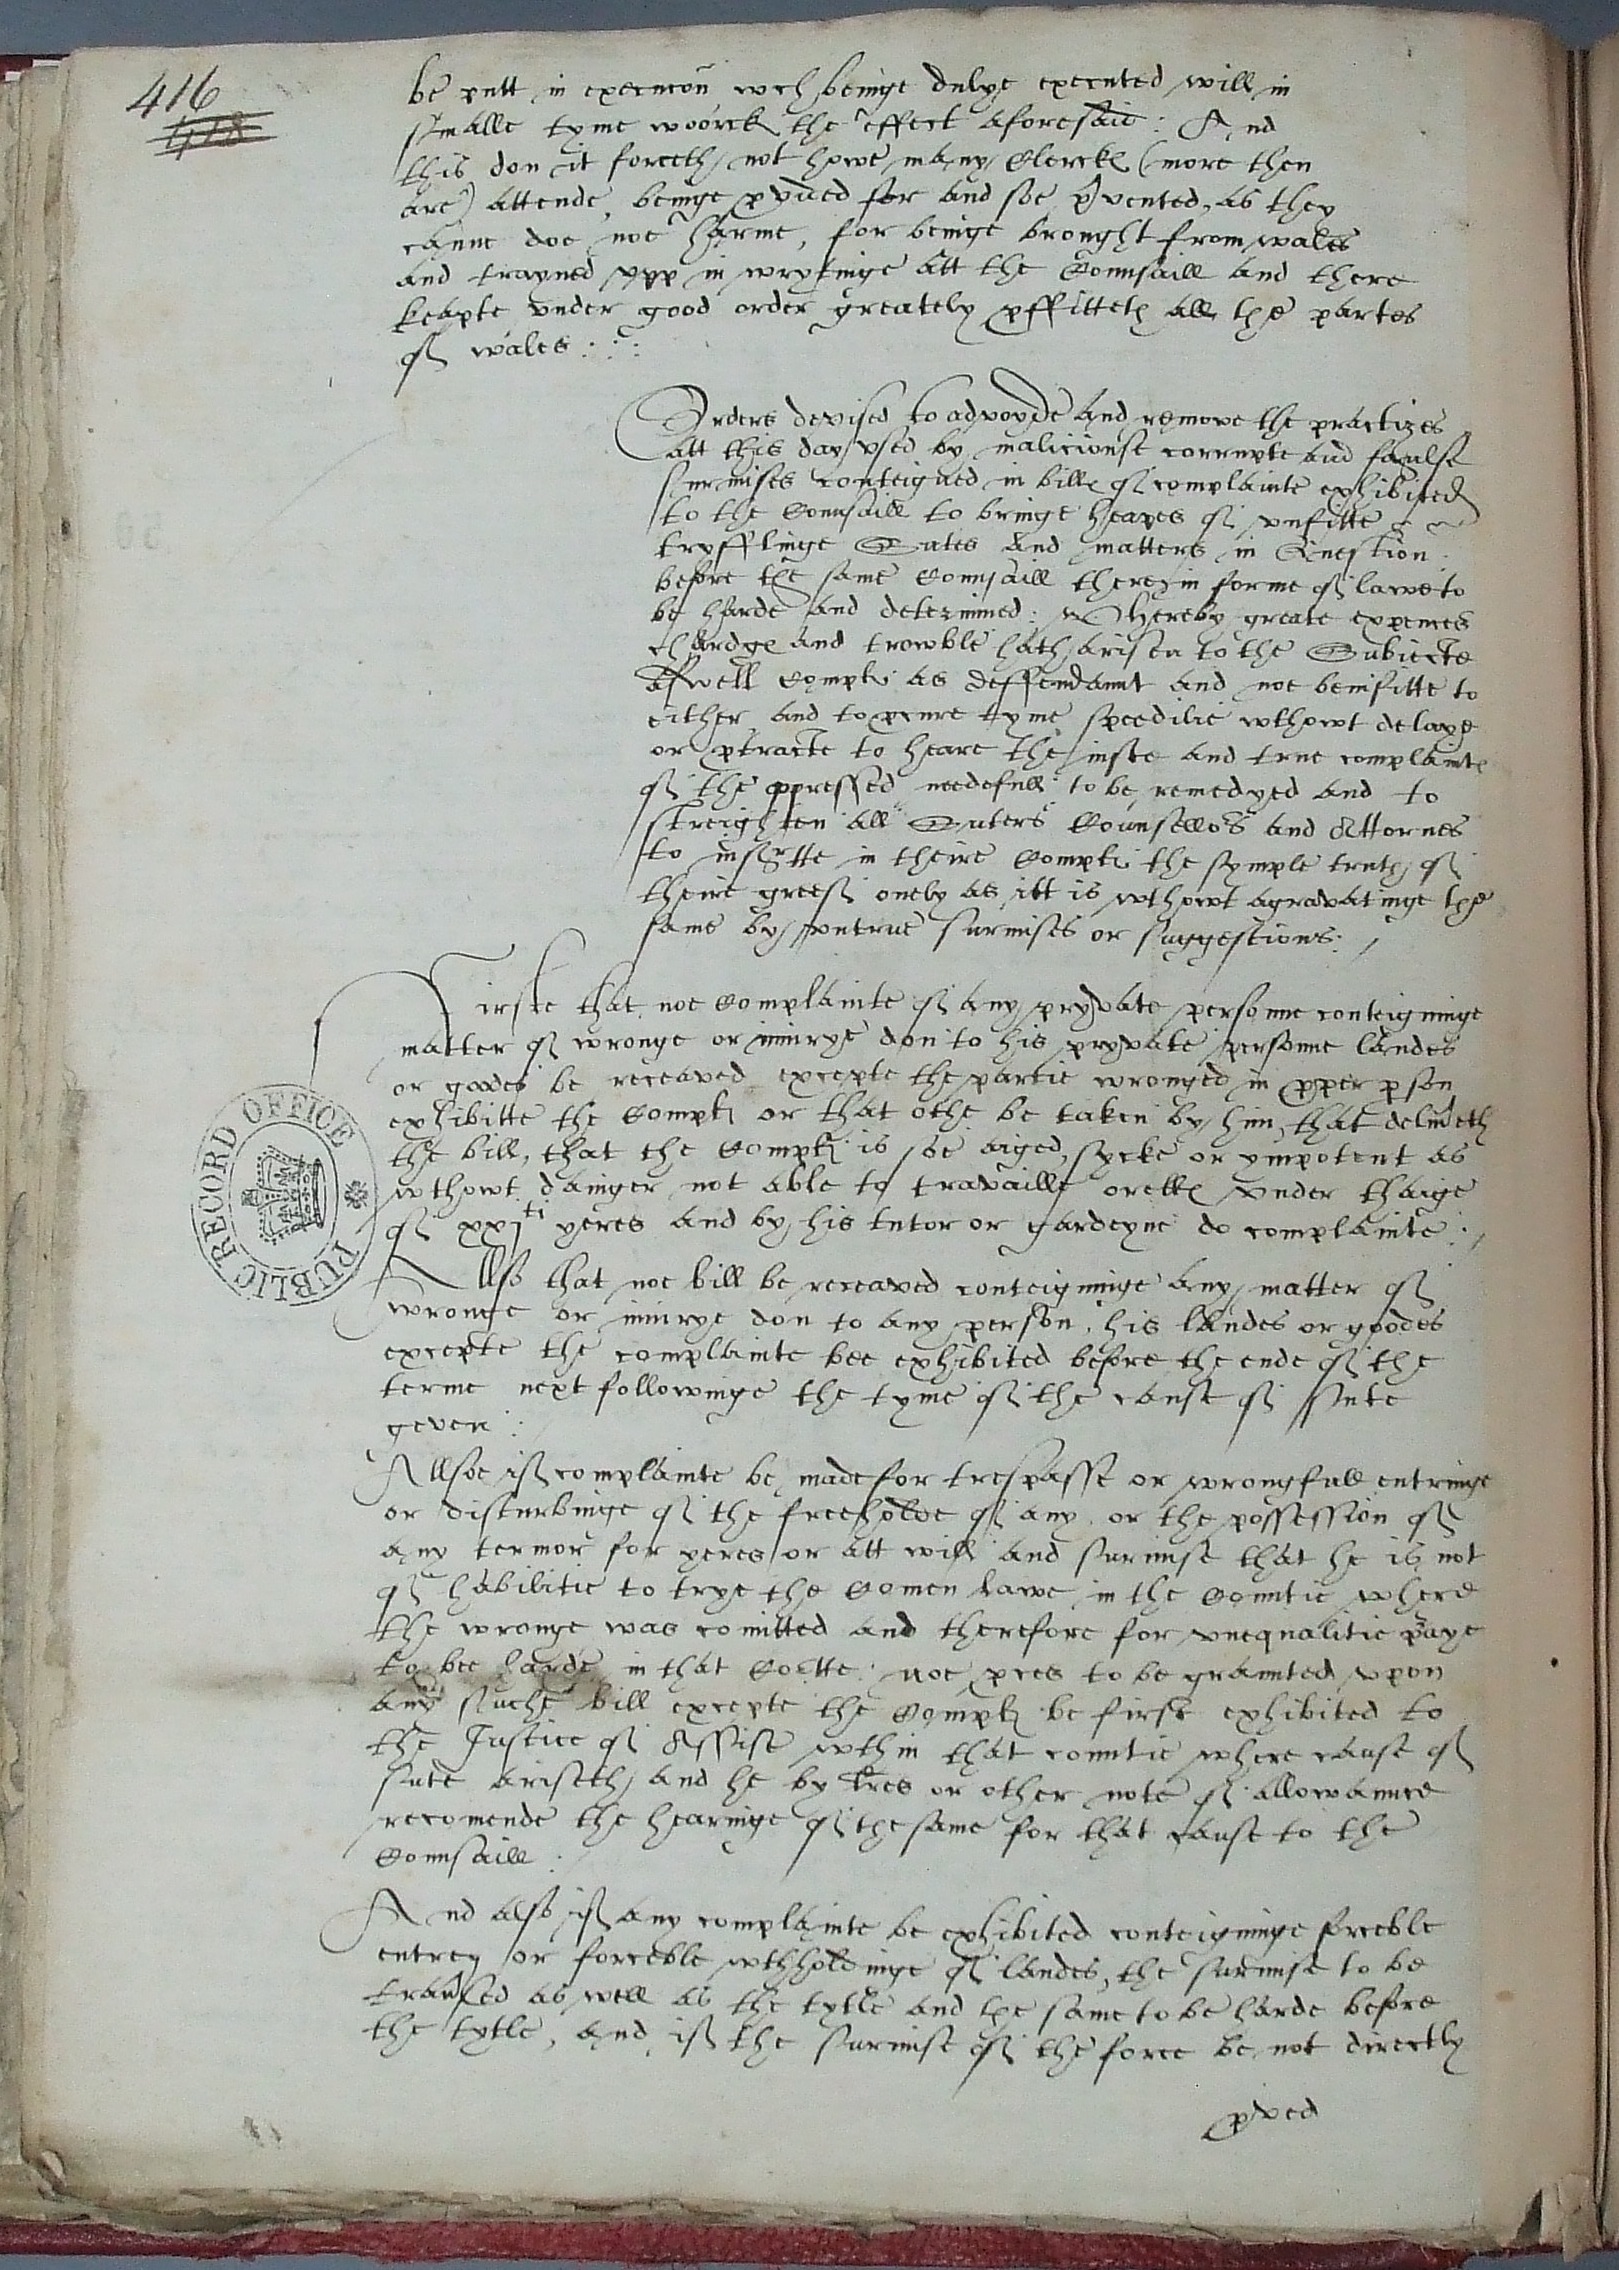 416
418
be putt in execucon wch beinge dulye executed will in
smalle tyme woorck the effect aforesaid : And
this don it forceth not howe many Clerckes (more then
are) attende, beinge pvided for and soe pvented, as they
canne doe noe harme, for beinge brought from wales
and trayned vpp in wrytinge att the Counsaill and there
keapte vnder good order greately pffitteth all the partes
of wales :
Orders devised to advoyde and remove the practizes
att this day vsed by maliciouse corrupte and faulse
surmises conteigned in billes of complainte exhibited
to the Counsaill to bringe heapes of vnfitte
tryfflinge Sutes and matters in Question
before the same Counsaill there in forme of lawe to
be harde and determined : Whereby greate expences
chardges and trowble hath arisen to the Subiecte
aswell Complt as deffendannt and noe benifitte to
either and to pcure tyme speedilie wthowt delaye
or ptracte to heare the iuste and true complaintes
of the oppressed needefull to be remedyed and to
streighten all Suters Counsellors and Attornes
to insertte in theire Complt the symple truth of
theire greef onely as itt is wthowt agravatinge the
same by vntrue surmises or suggestions :
Firste that noe Complainte of any pryvate personne conteigninge
matter of wronge or iniurye don to his pryvate personne landes
or goodes be receaved excepte the partie wronged in pper pson
exhibitte the Complt or that othe be taken by him, that deliuereth
the bill, that the Complt is soe aiged, sycke or ympotent as
wthowt dainger not able to travaille orelles vnder thaige
of xxjti yeres and by his tutor or gardeyne do complainte :
Allso that noe bill be receaved conteigninge any matter of
wronge or iniurye don to any person, his landes or goodes
excepte the complainte bee exhibited before the ende of the
terme next followinge the tyme of the cause of sute
geven :
Allsoe if complainte be made for trespasse or wrongfull entringe
or disturbinge of the freeholde of any or the possession of
any termor for yeres or att will and surmise that he is not
of habilitie to trye the Comen lawe in the Countie where
the wronge was comitted and therefore for vnequalitie praye
to bee harde in that Cortte : noe pces to be graunted vpon
any suche bill excepte the Complt be first exhibited to
the Justice of Assise wthin that countie where cause of
sute ariseth and he by lres or other note of allowannce
recomende the hearinge of the same for that cause to the
Counsaill :
And also if any complainte be exhibited conteigninge forceble
entrey or forceble wthholdinge of landes, the surmise to be
traused as well as the tytle and the same to be harde before
the tytle, and if the surmise of the force be not directly
pved
PUBLIC RECORD OFFICE